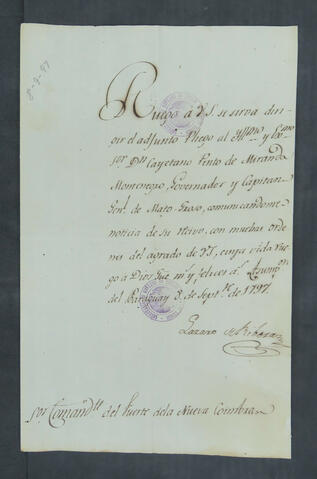 8-9-97
Ruego à VS. se serva diri-
gir el adjunto Pliego al Illmo. y Exmo.
Sor. Dn. Cayetano Pinto de Miranda
Montenegro, Governador y Capitan
Genl. de Mato-Groso, comunicandome
noticia de su recivo, con muchas orde-
nes del agrado de VS, cuya vida rue-
go à Dios gue. ms. y felices as. Asumpon.
del Paraguay 8. de Septre. de 1797.
Lazaro de Ribera
Sor. Comandte. del Fuerte dela Nueva Coimbra